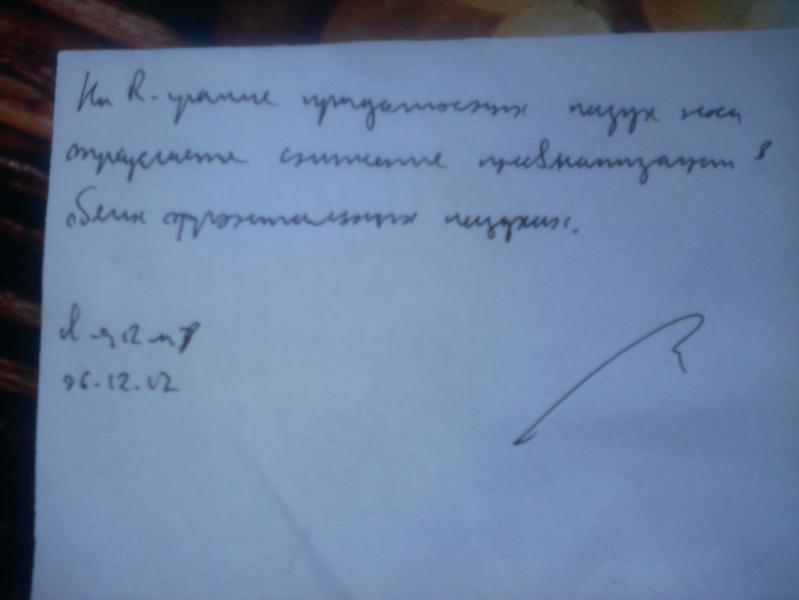 На R-грамме придаточных пазух носа
определяется снижение пневматизации в
обеих фронтальных пазухах.
26.12.12